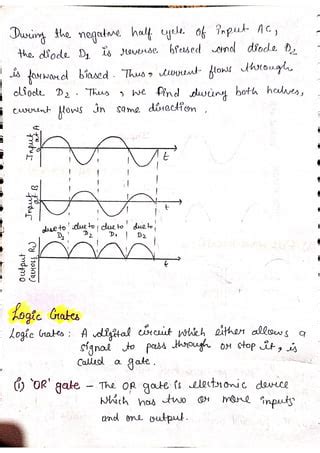 During the negative half cycle of Input AC,
the diode D1 is reverse biased and diode D2
is forward biased. Thus, current flows through
diode D2. Thus, we find during both halves,
current flows in same direction.
Input at A
t
Input at B
t
due to D1
due to D2
due to D1
due to D2
Output (across RL)
Logic Gates
Logic Gates: A digital circuit which either allows a
signal to pass through or stop it, is
called a gate.
(i) 'OR' gate - The OR gate is electronic device
which has two or more inputs
and one output.